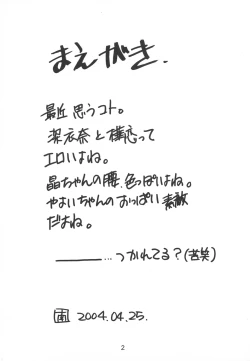 まえがき.
最近思うコト。
梨衣奈と横恋って
エロいよね。
晶ちゃんの腰、色っぽいよね。
やよいちゃんのおっぱい素敵
だよね。
――…つかれてる?(苦笑)
2004.04.25.
2